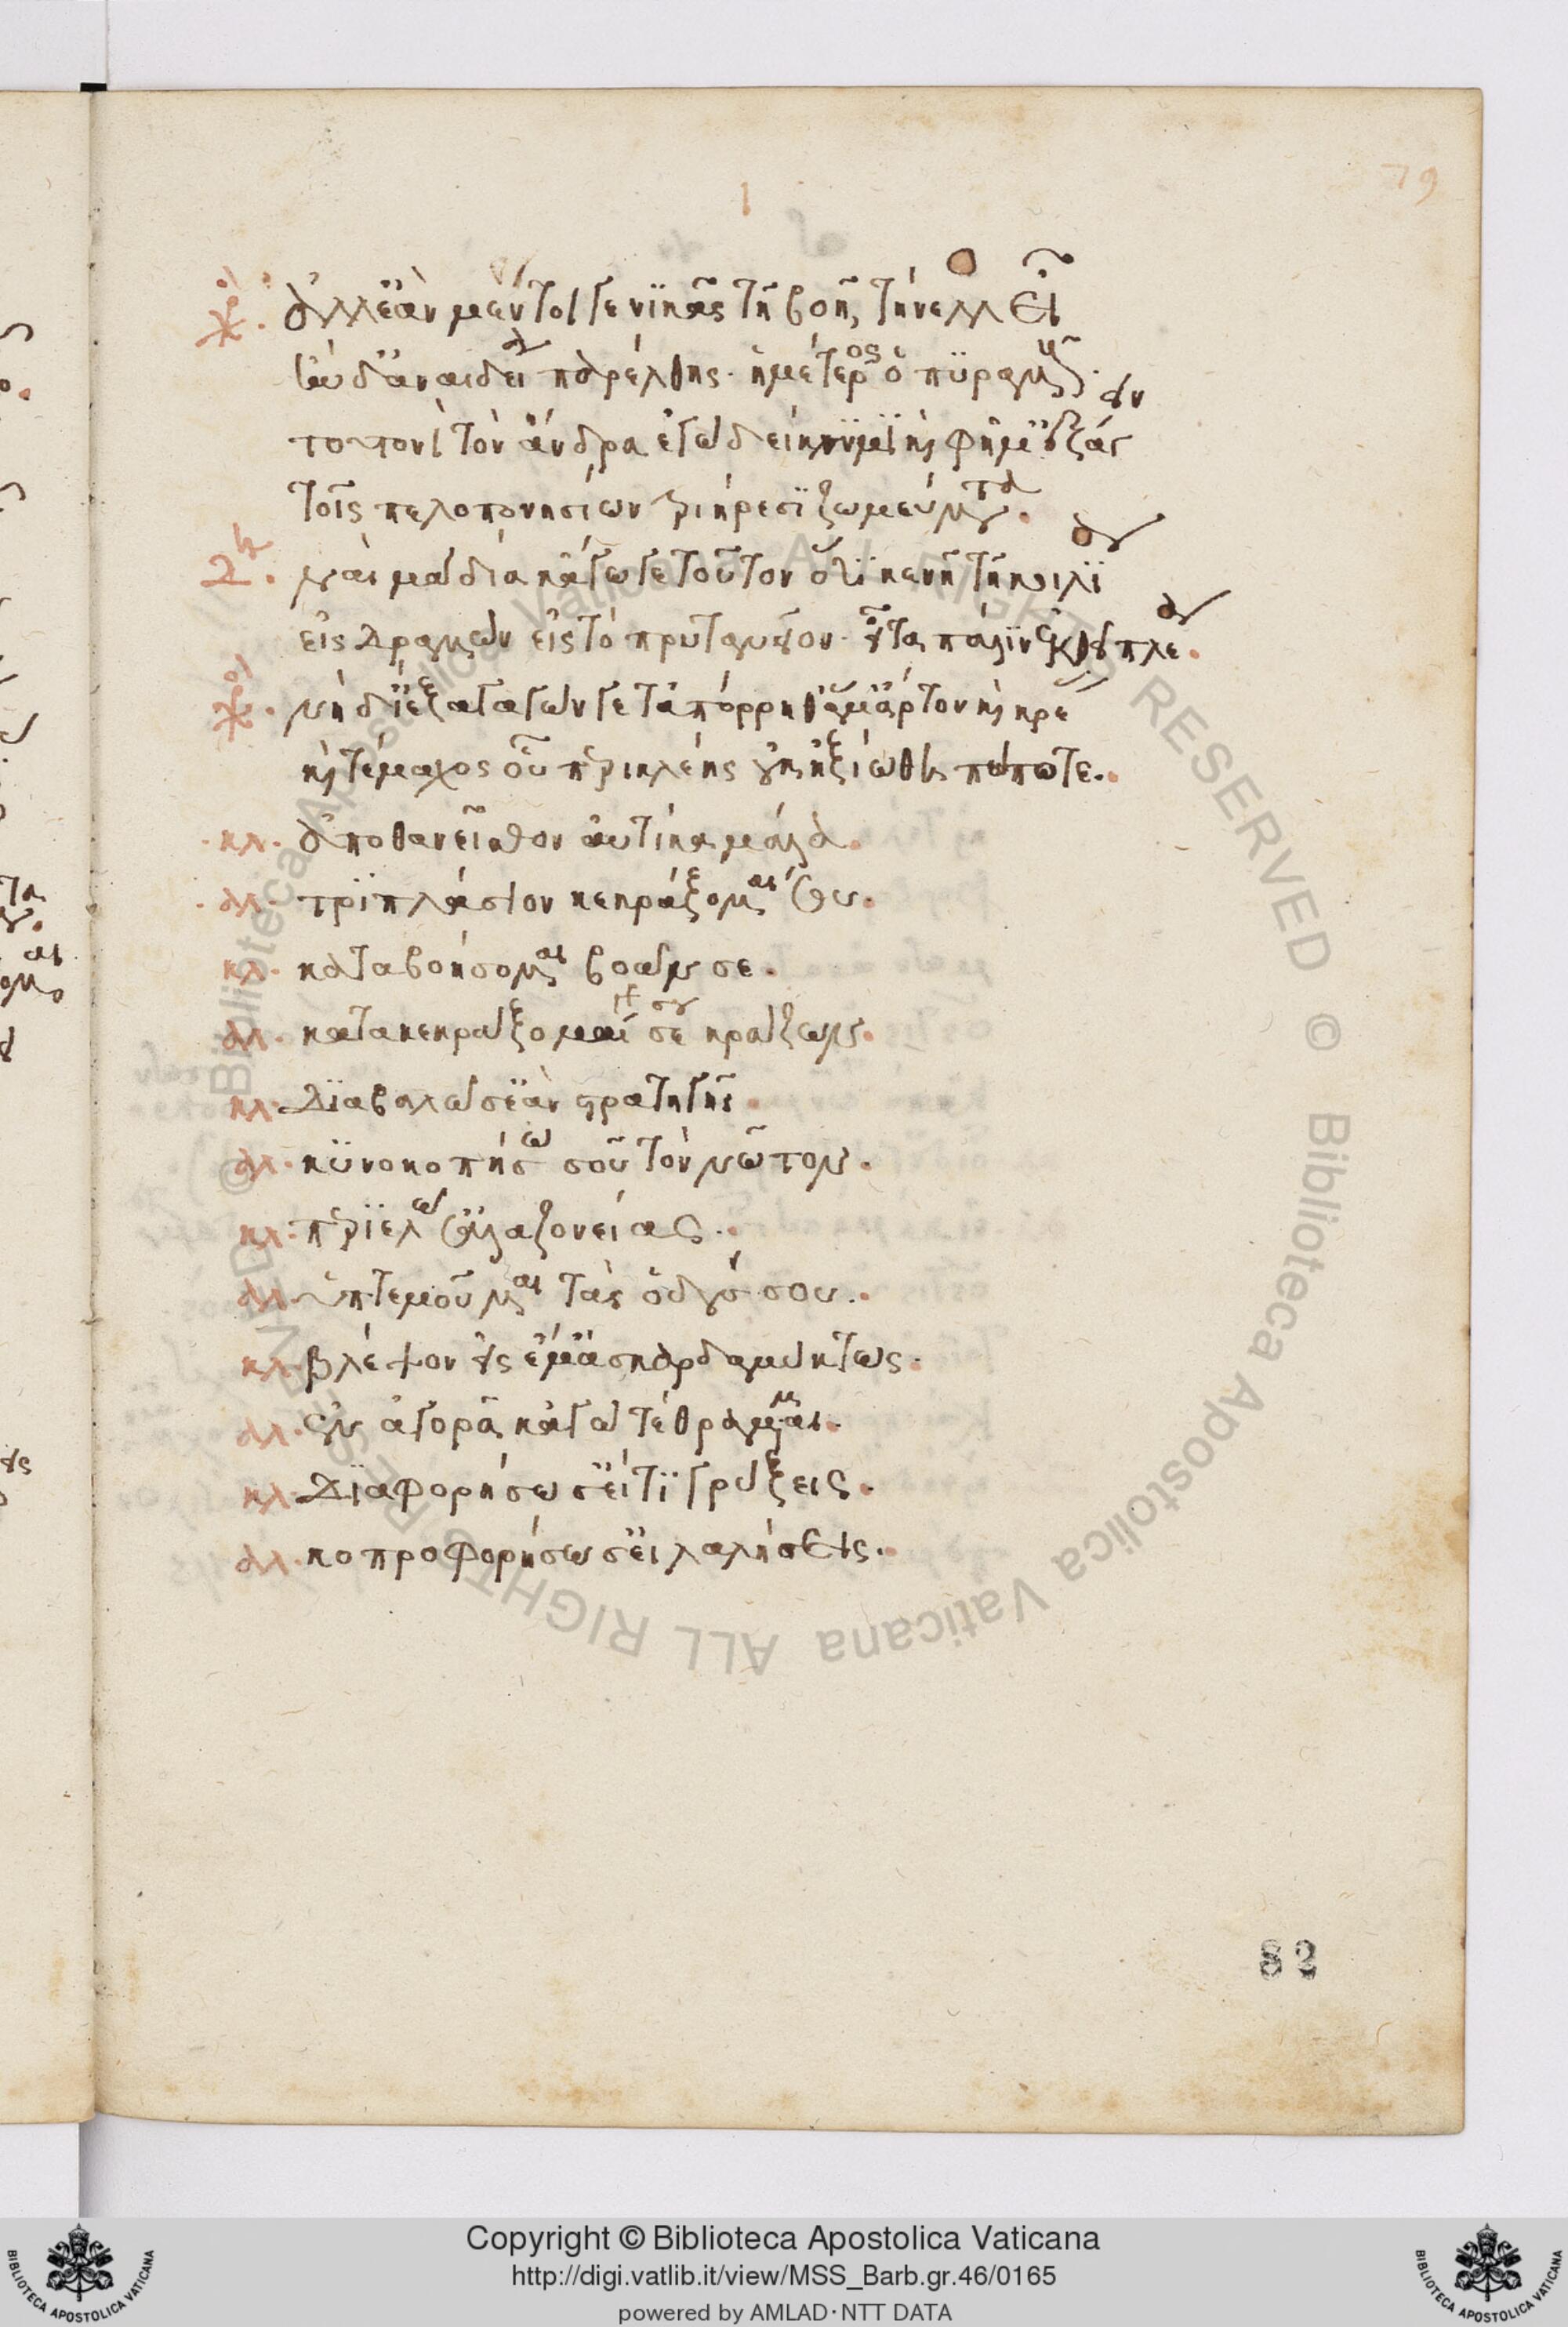 79
χο. ἀλλ' ἐὰν μέντοι γε νικᾷς τῇ βοῇ, τήνελλ' εἶ
ἐὰν δ' ἀναιδείᾳ παρέλθῃς· ἡμέτερος ὁ πυραμοῦς.
τουτονὶ τὸν ἄνδρα ἐγὼ δείκνυμι καὶ φήμ' ἐξάγειν
τοῖς πελοπονησίων τριήρεσι ζωμεύματα.
ναὶ μὰ δία κἄγωγε τοῦτον ὅτι κενῇ τῇ κοιλίᾳ
εἰσδραμὼν εἰς τὸ πρυτανεῖον· εἶτα πάλιν ἐκθεῖ πλέα.
χο. νὴ δί' ἐξάγαγών γε τἀπόρρηθ' ἅμ' ἄρτον καὶ κρέας
καὶ τέμαχος οὗ περικλέης οὐκ ἠξιώθη πώποτε.
κλ. ἀποθανεῖσθον αὐτίκα μάλα.
ἀλ. τριπλάσιον κεκράξομαί σου.
κλ. καταβοήσομαι βοῶν σε.
ἀλ. κατακεκράξομαί σε κράζων.
κλ. διαβαλῶ σ' ἐὰν στρατηγῇς.
ἀλ. κυνοκοπήσω σοῦ τὸν νῶτον.
κλ. περιελῶ σ' ἀλαζονείας.
ἀλ. ὑποτεμοῦμαι τὰς ὁδούς σου.
κλ. βλέψον εἰς ἔμ' ἀσκαρδαμύκτως.
ἀλ. ἐν ἀγορᾷ κἀγὼ τέθραμμαι.
κλ. διαφορήσω σ' εἴ τι γρύξεις.
ἀλ. κοπροφορήσω σ' εἰ λαλήσεις.
82
Copyright © Biblioteca Apostolica Vaticana
http://digi.vatlib.it/view/MSS_Barb.gr.46/0165
powered by AMLAD·NTT DATA